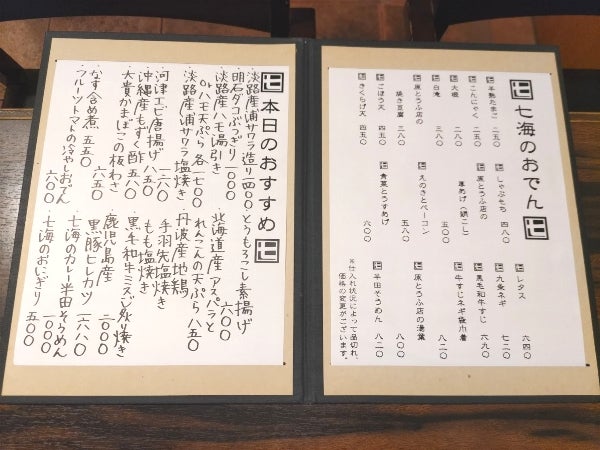 七海のおでん
半熟たまご 二五〇
こんにゃく 二五〇
大根 二八〇
白滝 二八〇
原とうふ店の
焼き豆腐 三八〇
ごぼう天 四五〇
きくらげ天 四五〇
しゃぶもち 四八〇
原とうふ店の
厚あげ(絹こし) 五〇〇
えのきとベーコン 五八〇
青菜とうすあげ 六〇〇
レタス 六四〇
九条ネギ 七二〇
黒毛和牛すじ 六九〇
牛すじネギ袋巾着 八二〇
原とうふ店の湯葉 八〇〇
半田そうめん 八二〇
※仕入れ状況によって品切れ、
価格の変更がございます。
本日のおすすめ
・淡路産浦サワラ造り 一四〇〇
・明石ダコぶつぎり 一〇〇〇
・淡路産ハモ湯引き
or ハモ天ぷら 各一七〇〇
・淡路産浦サワラ塩焼き
・河津エビ唐揚げ 一二八〇
・沖縄産もずく酢 八五〇
・大貴かまぼこの板わさ 五五〇
・なす含め煮 五五〇
・フルーツトマトの冷やしおでん 六五〇
六〇〇
・とうもろこし素揚げ 六〇〇
・北海道産アスパラと
れんこんの天ぷら 八五〇
・丹波産地鶏
手羽先塩焼き
もも塩焼き
・黒毛和牛ミスジ炙り焼き 二〇〇〇
・鹿児島産
黒豚ヒレカツ 一六八〇
・七海のカレー半田そうめん 一〇〇〇
・七海のおにぎり 五〇〇